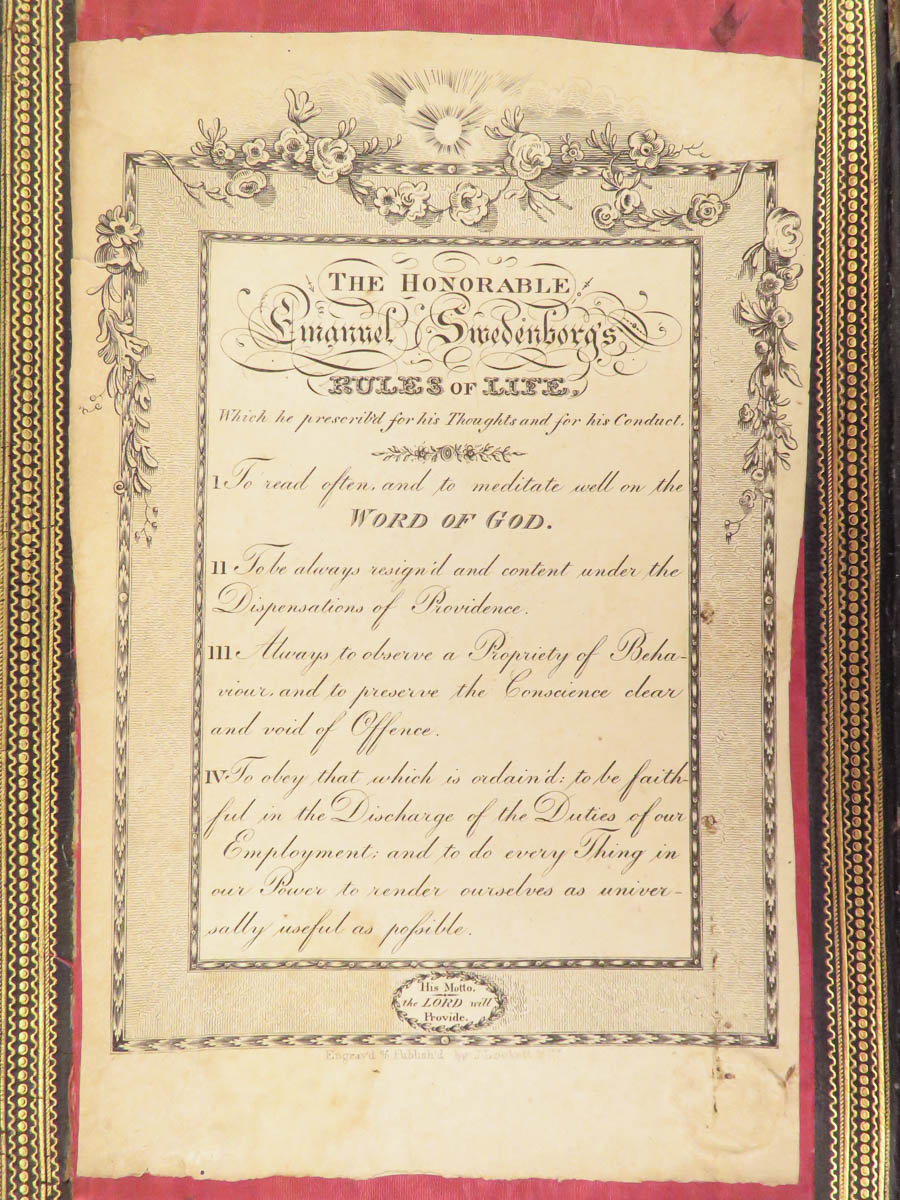 THE HONORABLE
Emanuel Swedenborg's
RULES OF LIFE,
Which he prescrib'd for his Thoughts and for his Conduct.
I To read often, and to meditate well on the
WORD OF GOD.
II To be always resign'd and content under the
Dispensations of Providence.
III Always to observe a Propriety of Beha-
viour, and to preserve the Conscience clear
and void of Offence.
IV To obey that which is ordain'd: to be faith-
ful in the Discharge of the Duties of our
Employment; and to do every Thing in
our Power to render ourselves as univer-
sally useful as poſsible.
His Motto.
the LORD will
Provide.
Engrav'd & Publish'd by J. Lockett